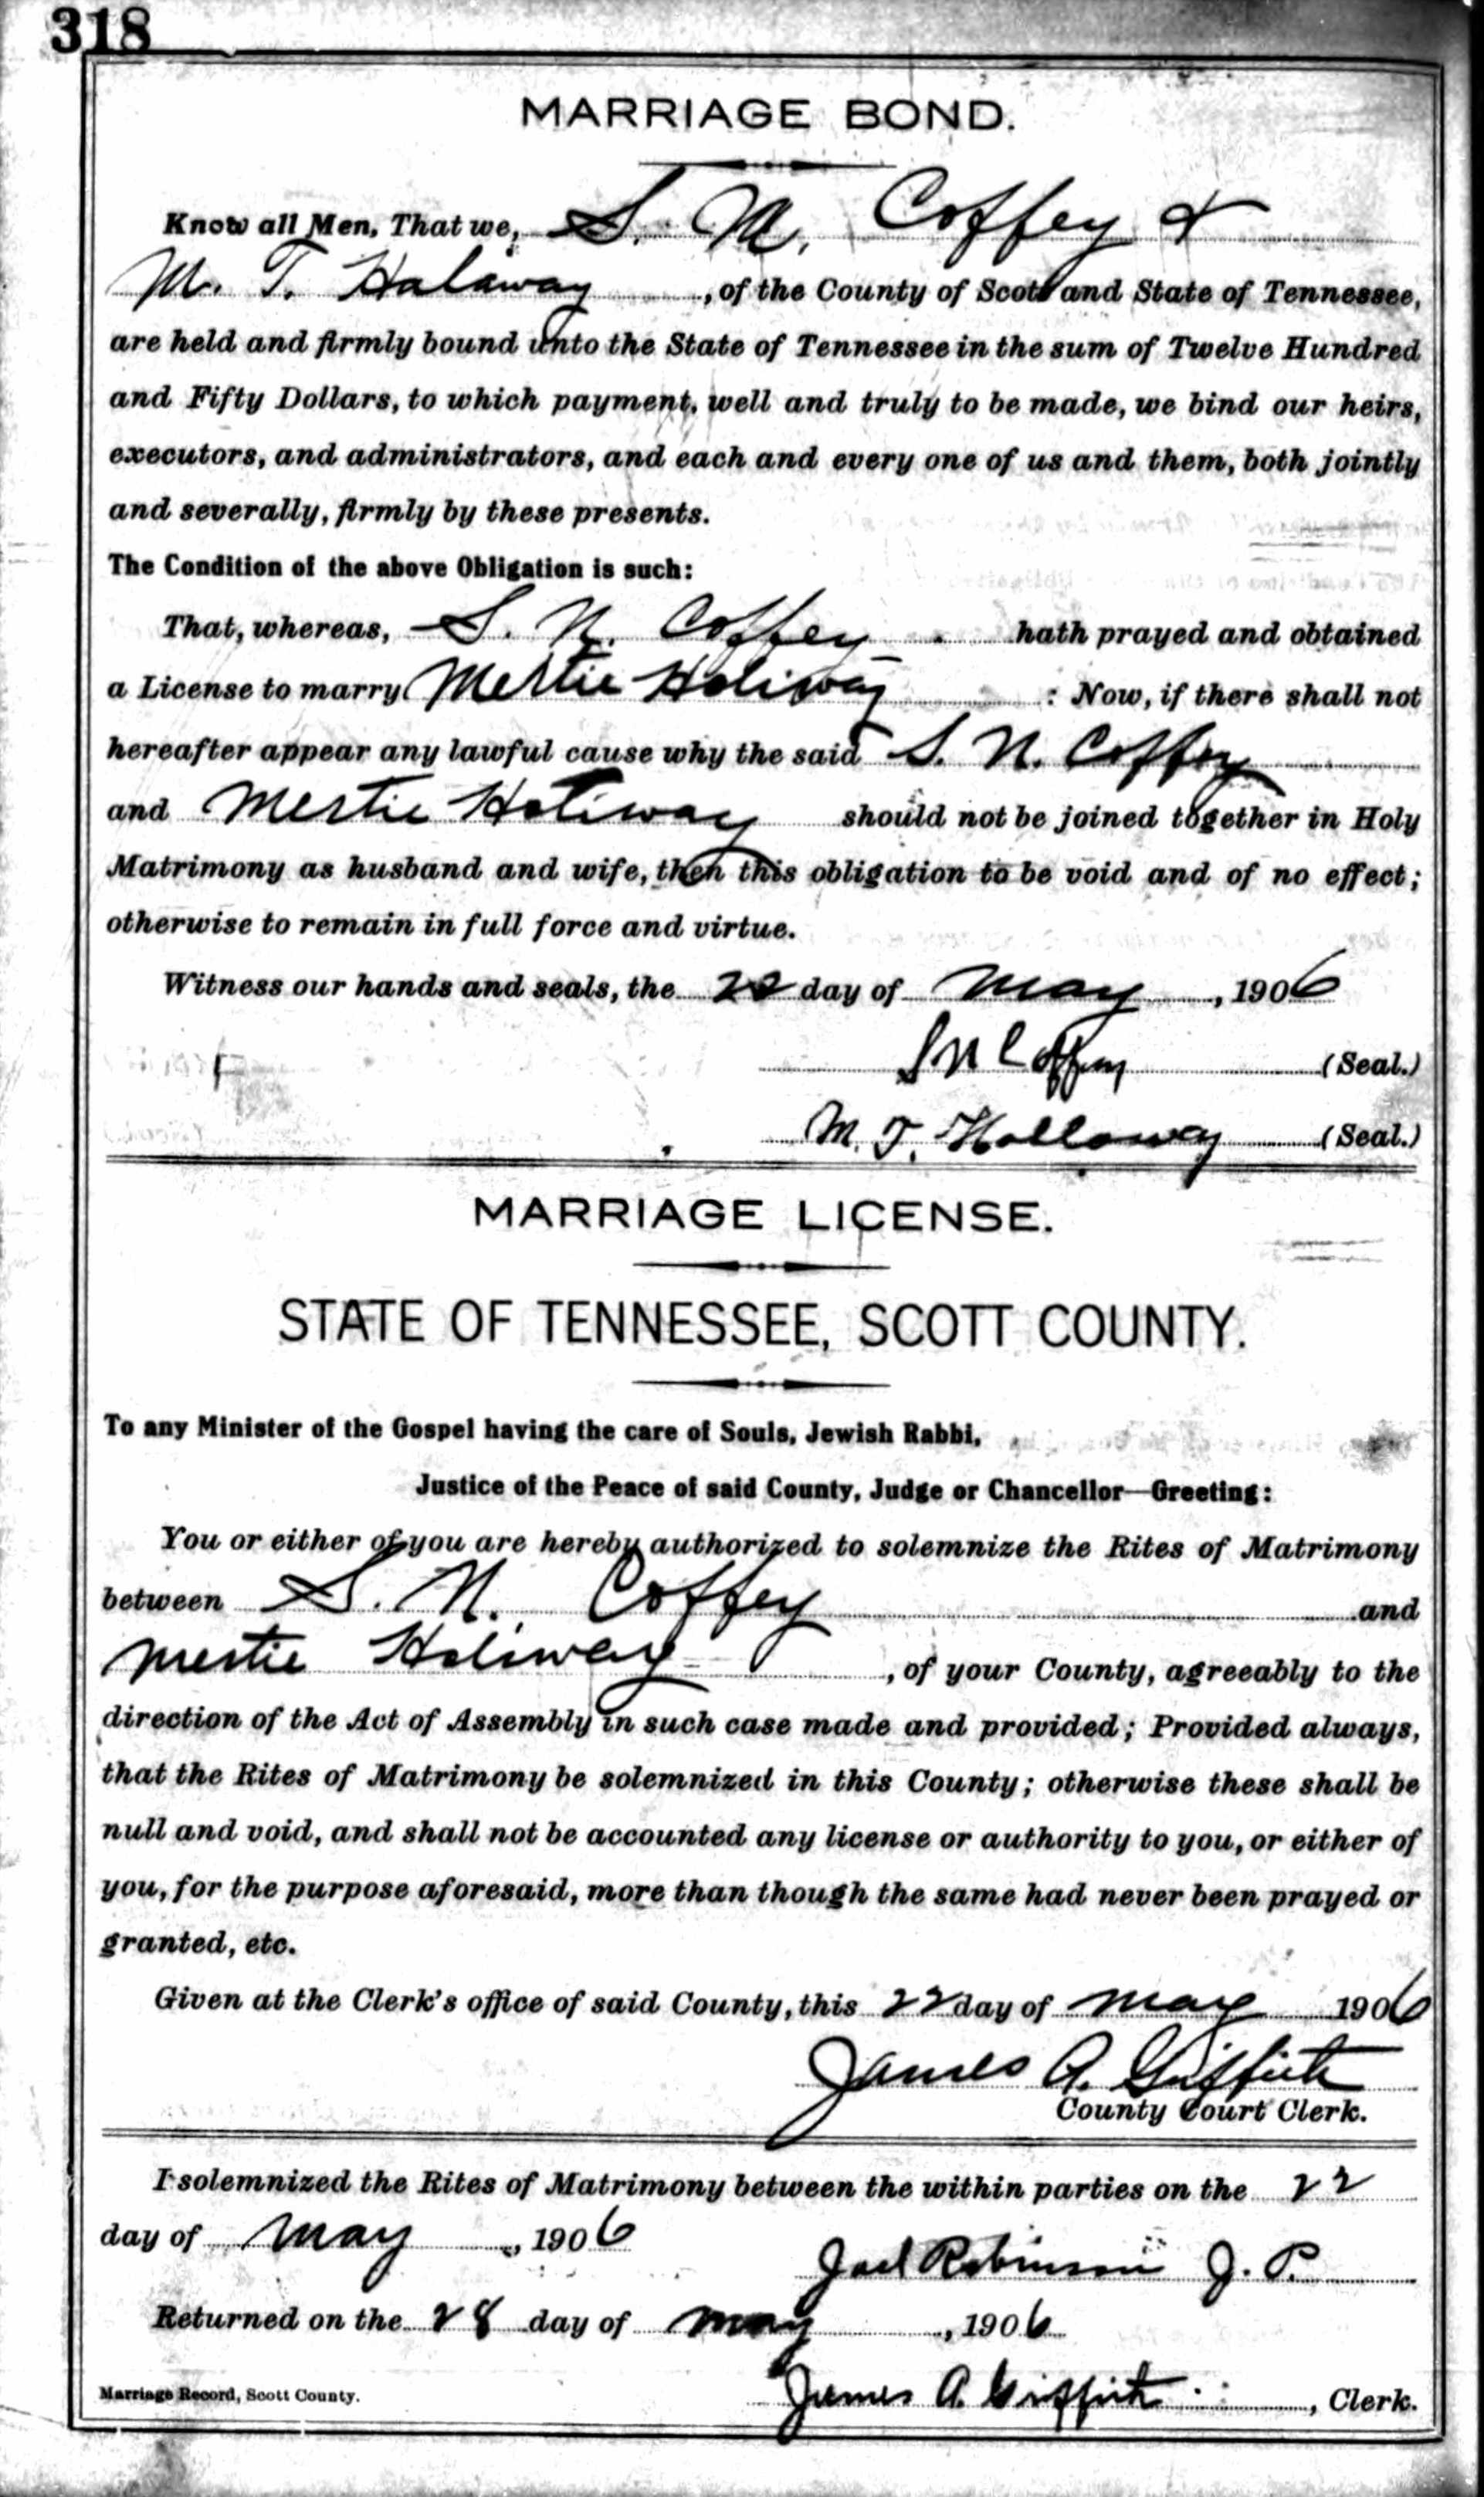 318
MARRIAGE BOND.
Know all Men, That we, S. N. Coffey &
M. T. Holaway, of the County of Scott and State of Tennessee,
are held and firmly bound unto the State of Tennessee in the sum of Twelve Hundred
and Fifty Dollars, to which payment, well and truly to be made, we bind our heirs,
executors, and administrators, and each and every one of us and them, both jointly
and severally, firmly by these presents.
The Condition of the above Obligation is such:
That, whereas, S. N. Coffey hath prayed and obtained
a License to marry Mertie Holiway : Now, if there shall not
hereafter appear any lawful cause why the said S. N. Coffey
and Mertie Holiway should not be joined together in Holy
Matrimony as husband and wife, then this obligation to be void and of no effect;
otherwise to remain in full force and virtue.
Witness our hands and seals, the 22 day of May, 1906
S N Coffey (Seal.)
M. T. Holloway (Seal.)
MARRIAGE LICENSE.
STATE OF TENNESSEE, SCOTT COUNTY.
To any Minister of the Gospel having the care of Souls, Jewish Rabbi,
Justice of the Peace of said County, Judge or Chancellor—Greeting:
You or either of you are hereby authorized to solemnize the Rites of Matrimony
between S. N. Coffey and
Mertie Holiway, of your County, agreeably to the
direction of the Act of Assembly in such case made and provided; Provided always,
that the Rites of Matrimony be solemnized in this County; otherwise these shall be
null and void, and shall not be accounted any license or authority to you, or either of
you, for the purpose aforesaid, more than though the same had never been prayed or
granted, etc.
Given at the Clerk's office of said County, this 22 day of May 1906
James A. Griffith
County Court Clerk.
I solemnized the Rites of Matrimony between the within parties on the 22
day of May, 1906
Joel Robinson J. P.
Returned on the 28 day of May, 1906
Marriage Record, Scott County.
James A. Griffith, Clerk.